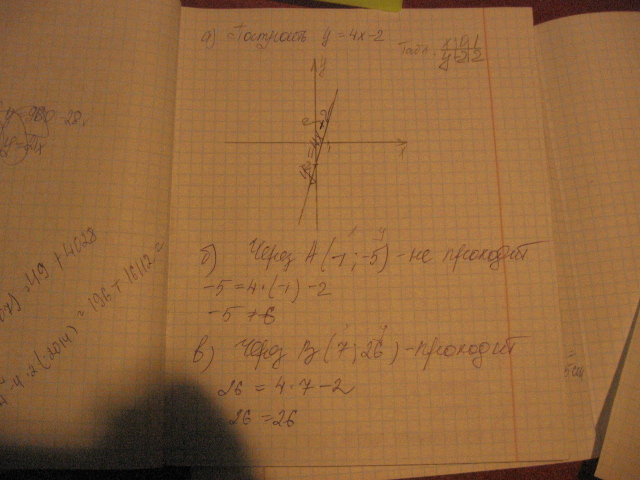 а) Построить y = 4x-2
Табл. x | 0 | 1
y | -2 | 2
y
x
y = 4x-2
x y
б) Через А (-1; -5) - не проходит
-5 = 4·(-1) -2
-5 ≠ -6
в) Через В (7; 26) - проходит
26 = 4·7-2
26 = 26
49 + 4028
-4·2(-2014) = 196 + 16112 =
5 см